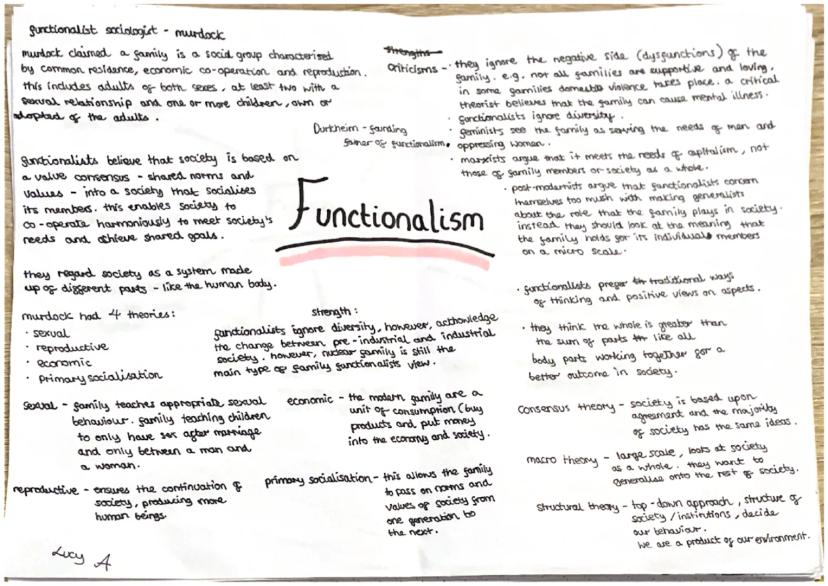 functionalist sociologist - murdock
murdock claimed a family is a social group characterised
by common residence, economic co-operation and reproduction.
this includes adults of both sexes, at least two with a
sexual relationship and one or more children, own or
adopted of the adults.
functionalists believe that society is based on
a value consensus - shared norms and
values - into a society that socialises
its members. this enables society to
co-operate harmoniously to meet society's
needs and achieve shared goals.
they regard society as a system made
up of different parts - like the human body.
murdock had 4 theories:
· sexual
· reproductive
· economic
· primary socialisation
sexual - family teaches appropriate sexual
behaviour. family teaching children
to only have sex after marriage
and only between a man and
a woman.
reproductive - ensures the continuation of
society, producing more
human beings
Lucy A
Durkheim - founding
father of functionalism
Functionalism
strength:
functionalists ignore diversity, however, acknowledge
the change between pre-industrial and industrial
society. however, nuclear family is still the
main type of family functionalists view.
economic - the modern family are a
unit of consumption (buy
products and put money
into the economy and society.
primary socialisation - this allows the family
to pass on norms and
values of society from
one generation to
the next.
strengths
criticisms - · they ignore the negative side (dysfunctions) of the
family. e.g. not all families are supportive and loving,
in some families domestic violence takes place. a critical
theorist believes that the family can cause mental illness.
· functionalists ignore diversity.
· feminists see the family as serving the needs of men and
oppressing women.
· marxists argue that it meets the needs of capitalism, not
those of family members or society as a whole.
· post-modernists argue that functionalists concern
themselves too mush with making generalists
about the role that the family plays in society.
instead they should look at the meaning that
the family holds for its individuals members
on a micro scale.
· functionalists prefer traditional ways
of thinking and positive views on aspects.
· they think the whole is greater than
the sum of parts like all
body parts working together for a
better outcome in society.
consensus theory - society is based upon
agreement and the majority
of society has the same ideas.
macro theory - large scale, looks at society
as a whole. they want to
generalise onto the rest of society.
structural theory - top-down approach, structure of
society/institutions, decide
our behaviour.
we are a product of our environment.